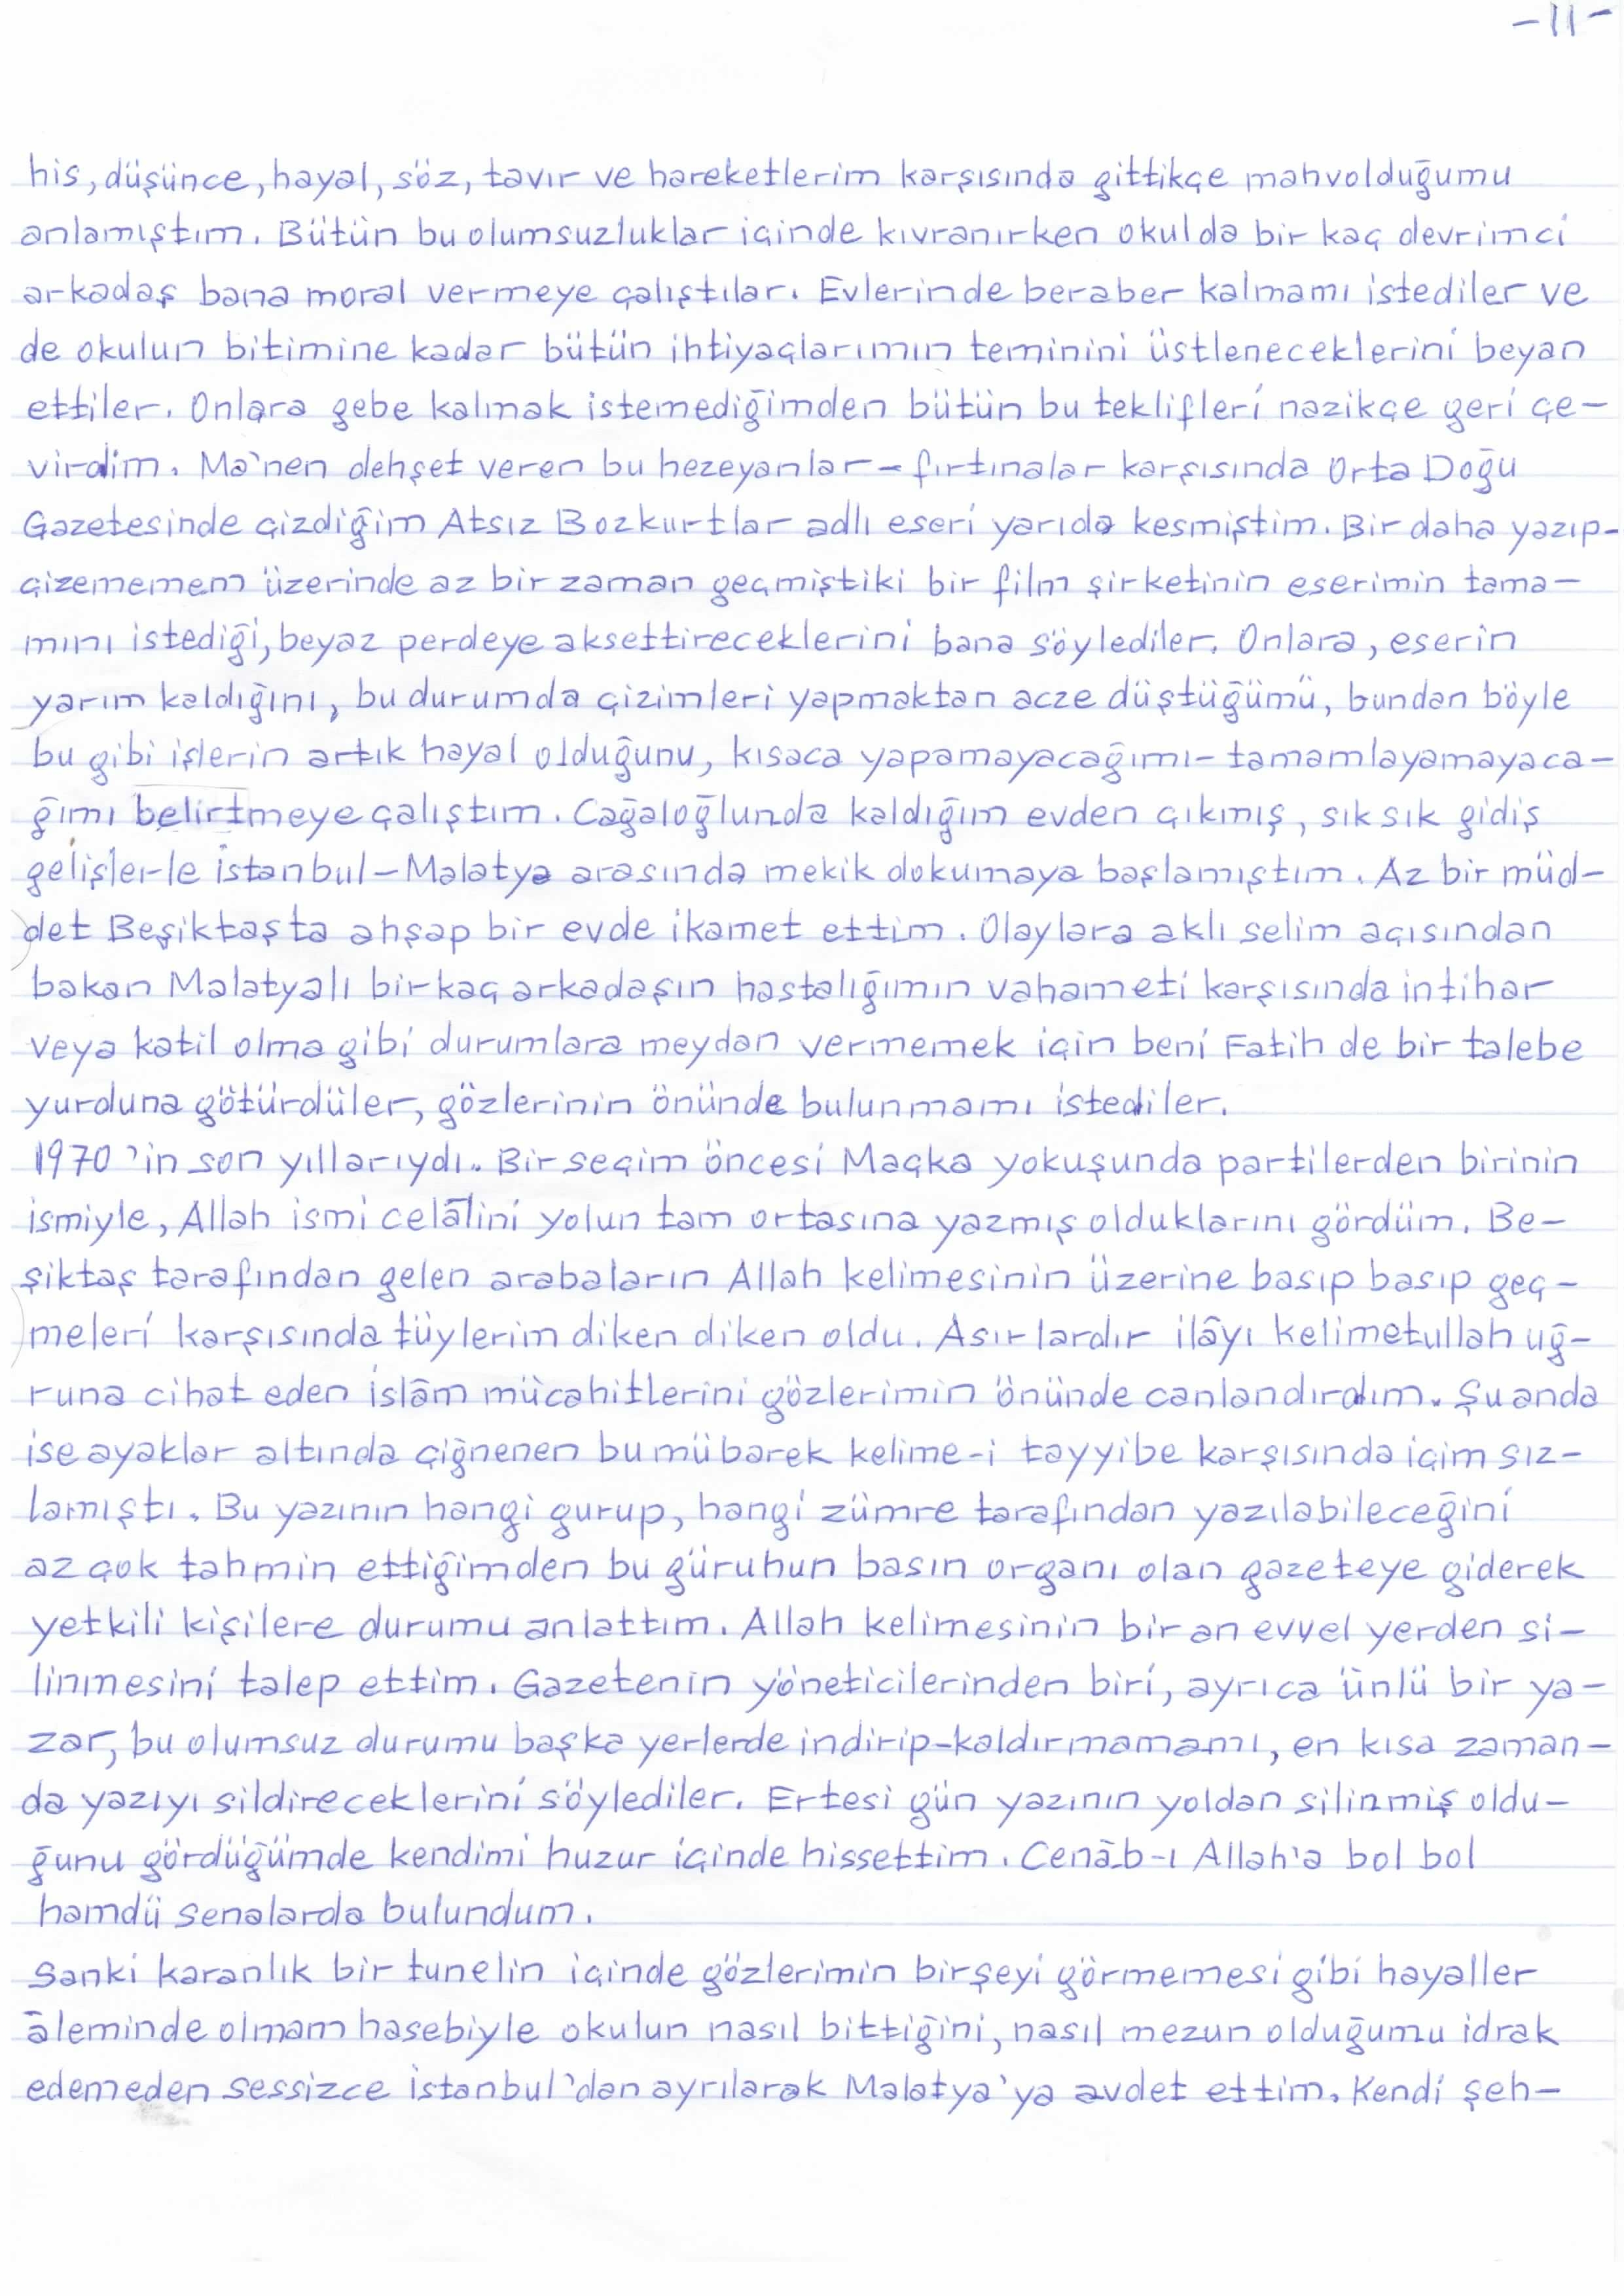 -11-
his, düşünce, hayal, söz, tavır ve hareketlerim karşısında gittikçe mahvolduğumu
anlamıştım. Bütün bu olumsuzluklar içinde kıvranırken okulda bir kaç devrimci
arkadaş bana moral vermeye çalıştılar. Evlerinde beraber kalmamı istediler ve
de okulun bitimine kadar bütün ihtiyaçlarımın teminini üstleneceklerini beyan
ettiler. Onlara gebe kalmak istemediğimden bütün bu teklifleri nazikçe geri çe-
virdim. Ma'nen dehşet veren bu hezeyanlar - fırtınalar karşısında Orta Doğu
Gazetesinde çizdiğim Atsız Bozkurtlar adlı eseri yarıda kesmiştim. Bir daha yazıp-
çizememem üzerinde az bir zaman geçmiştiki bir film şirketinin eserimin tama-
mını istediği, beyaz perdeye aksettireceklerini bana söylediler. Onlara, eserin
yarım kaldığını, bu durumda çizimleri yapmaktan acze düştüğümü, bundan böyle
bu gibi işlerin artık hayal olduğunu, kısaca yapamayacağımı-tamamlayamayaca-
ğımı belirtmeye çalıştım. Cağaloğlunda kaldığım evden çıkmış, sık sık gidiş
gelişlerle İstanbul-Malatya arasında mekik dokumaya başlamıştım. Az bir müd-
det Beşiktaşta ahşap bir evde ikamet ettim. Olaylara aklı selim açısından
bakan Malatyalı birkaç arkadaşın hastalığımın vahameti karşısında intihar
veya katil olma gibi durumlara meydan vermemek için beni Fatih de bir talebe
yurduna götürdüler, gözlerinin önünde bulunmamı istediler.
1970'in son yıllarıydı. Bir seçim öncesi Maçka yokuşunda partilerden birinin
ismiyle, Allah ismi celâlini yolun tam ortasına yazmış olduklarını gördüm. Be-
şiktaş tarafından gelen arabaların Allah kelimesinin üzerine basıp basıp geç-
meleri karşısında tüylerim diken diken oldu. Asırlardır ilâyı kelimetullah uğ-
runa cihat eden İslâm mücahitlerini gözlerimin önünde canlandırdım. Şu anda
ise ayaklar altında çiğnenen bu mübarek kelime-i tayyibe karşısında içim sız-
lamıştı. Bu yazının hangi gurup, hangi zümre tarafından yazılabileceğini
az çok tahmin ettiğimden bu güruhun basın organı olan gazeteye giderek
yetkili kişilere durumu anlattım. Allah kelimesinin bir an evvel yerden si-
linmesini talep ettim. Gazetenin yöneticilerinden biri, ayrıca ünlü bir ya-
zar, bu olumsuz durumu başka yerlerde indirip-kaldırmamamı, en kısa zaman-
da yazıyı sildireceklerini söylediler. Ertesi gün yazının yoldan silinmiş oldu-
ğunu gördüğümde kendimi huzur içinde hissettim. Cenâb-ı Allah'a bol bol
hamdü senalarda bulundum.
Sanki karanlık bir tunelin içinde gözlerimin birşeyi görmemesi gibi hayaller
âleminde olmam hasebiyle okulun nasıl bittiğini, nasıl mezun olduğumu idrak
edemeden sessizce İstanbul'dan ayrılarak Malatya'ya avdet ettim. Kendi şeh-